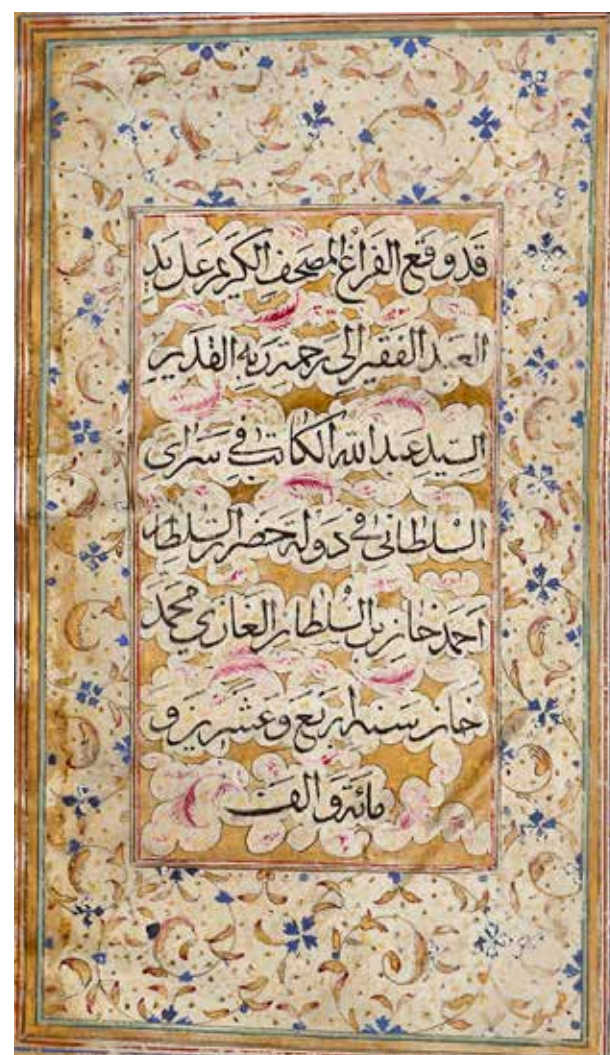 قد وقع الفراغ المصحف الكريم عل يد
العبد الفقير الى رحمة ربه القدير
السيد عبد الله الكاتب في سراى
السلطانى في دولة حضرة السلطان
احمد خان بن السلطان الغازي محمد
خان سنه اربع وعشرين و
مائة و الف